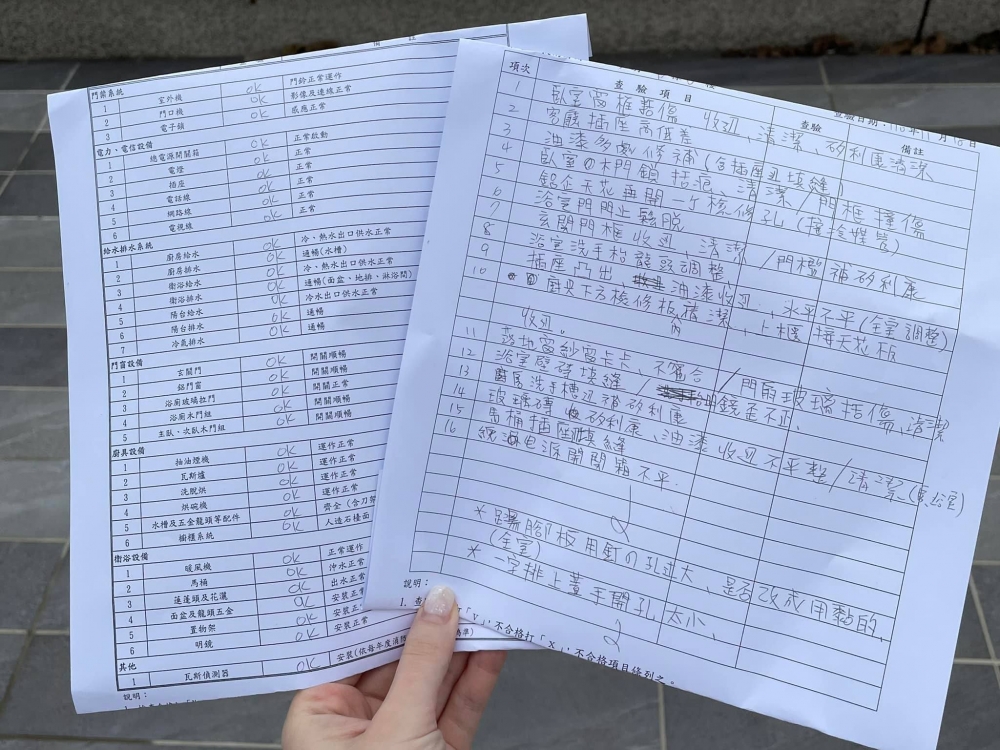 備 註
門禁系統
1 室外機 OK 門鈴正常運作
2 門口機 OK 影像及連線正常
3 電子鎖 OK 感應正常
電力、電信設備
1 總電源開關箱 OK 正常啟動
2 電燈 OK 正常
3 插座 OK 正常
4 電話線 OK 正常
5 網路線 OK 正常
6 電視線 OK 正常
給水排水系統
1 廚房給水 OK 冷、熱水出口供水正常
2 廚房排水 OK 通暢(水槽)
3 衛浴給水 OK 冷、熱水出口供水正常
4 衛浴排水 OK 通暢(面盆、地排、淋浴間)
5 陽台給水 OK 冷水出口供水正常
6 陽台排水 OK 通暢
7 冷氣排水 OK 通暢
門窗設備
1 玄關門 OK 開關順暢
2 鋁門窗 OK 開關順暢
3 浴廁玻璃拉門 OK 開關正常
4 浴廁木門組 OK 開關順暢
5 主臥、次臥木門組 OK 開關順暢
廚具設備
1 抽油煙機 OK 運作正常
2 瓦斯爐 OK 運作正常
3 洗脫烘 OK 運作正常
4 烘碗機 OK 運作正常
5 水槽及五金龍頭等配件 OK 齊全(含刀架
6 櫥櫃系統 OK 人造石檯面
衛浴設備
1 暖風機 OK 正常運作
2 馬桶 OK 沖水正常
3 蓮蓬頭及花灑 OK 出水正常
4 面盆及龍頭五金 OK 安裝正
5 置物架 OK 安裝正
6 明鏡 OK 安裝正常
其他
1 瓦斯偵測器 OK 安裝(依每年度消防
說明:
項次 查驗項目 查驗 備註
查驗日期:
1 臥室窗框括傷 收邊、清潔、矽利康清潔
2 客廳插座高低差
3 油漆多處修補(含插座邊填縫)
4 臥室木門鎖括痕、清潔/門框撞傷
5 鋁企天花再開一個檢修孔
6 浴室門門止鬆脫
7 玄關門框收邊、清潔 門檻補矽利康
8 浴室洗手檯龍頭調整
9 插座凸出、油漆收邊、水平不平(全室調整)
10 廚具下方檢修板清潔、上櫃接天花板
收邊。
11 落地窗紗窗卡卡、不密合/門扇玻璃括傷、清潔
12 浴室壁磚填縫
13 廚房洗手槽邊補矽利康 明鏡歪不正、
14 玻璃磚收矽利康、油漆收邊不平整/清潔(更浴室)
15 馬桶插座填縫
16 總電源開關箱不平.
*踢腳板用釘の孔过大、是否改成用黏的、
(全室)
*一字排上蓋手開孔太小、
說明:
1. 查 打「V」,不合格打「X」,不合格項目條列之。